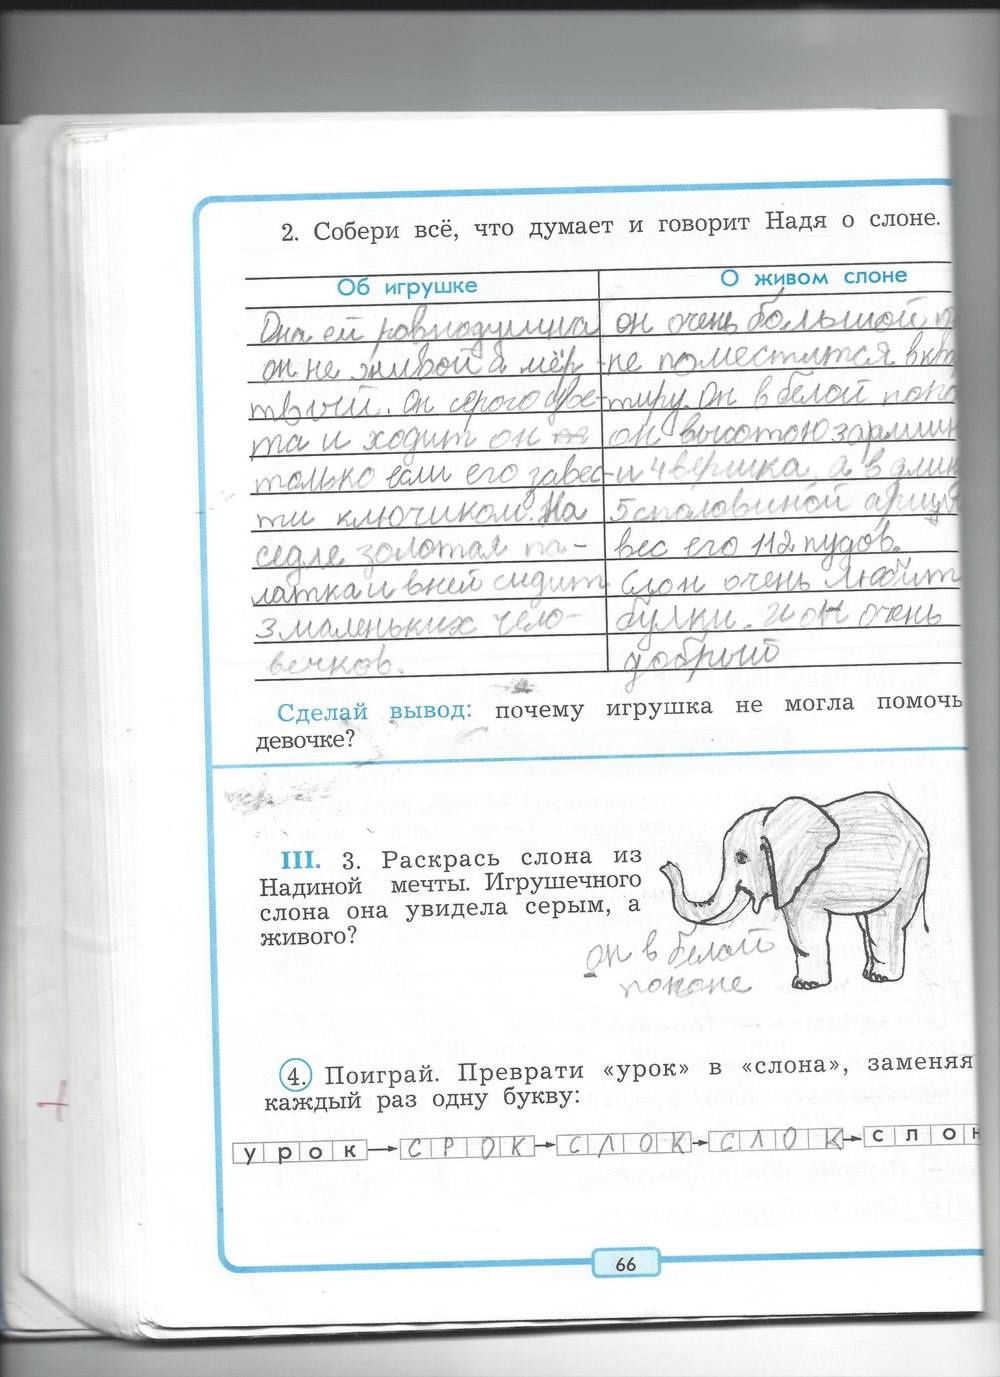 2. Собери всё, что думает и говорит Надя о слоне.
Об игрушке
О живом слоне
Она ей равнодушна
он не живой а мёр
твый. Он серого цве-
та и ходит он
только если его завес-
ти ключиком. На
седле золотая па-
латка и в ней сидит
3 маленьких чело-
вечков.
он очень большой
не поместится в ква
тиру. Он в белой попо
он высотою 3 аршин
и 4 вершка, а в длин
5 с половиной аршу
вес его 112 пудов.
Слон очень любит
булки. и он очень
добрый
Сделай вывод: почему игрушка не могла помочь
девочке?
III. 3. Раскрась слона из
Надиной мечты. Игрушечного
слона она увидела серым, а
живого?
он в белой
попоне
4. Поиграй. Преврати «урок» в «слона», заменяя
каждый раз одну букву:
урок → СРОК → СЛОК → СЛОК → слон
66